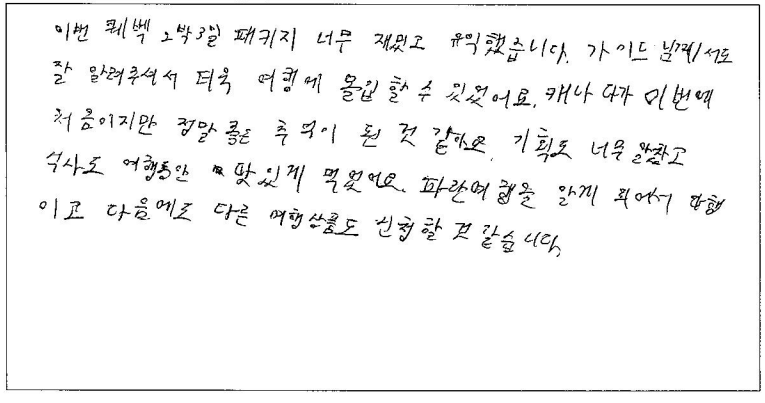 이번 퀘벡 2박3일 패키지 너무 재밌고 유익했습니다. 가이드 님께서도
잘 알려주셔서 더욱 여행에 몰입 할 수 있었어요. 캐나다가 이번에
처음이지만 정말 좋은 추억이 된 것 같아요. 기획도 너무 알찼고
식사도 여행동안 맛있게 먹었어요. 파란여행을 알게 되어서 다행
이고 다음에도 다른 여행상품도 신청할 것 같습니다.